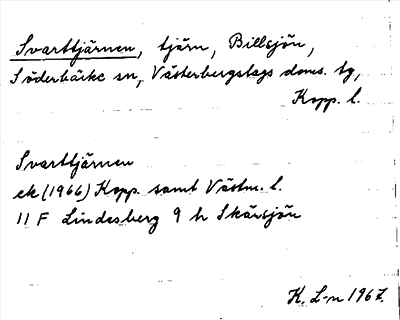 Svarttjärnen, tjärn, Billsjön,
Söderbärke sn, Västerbergslags doms. tg,
Kopp. l.
Svarttjärnen
ek (1966) Kopp. samt Västm. l.
11 F Lindesberg 9 h Skärsjön
K. L-n 1967.